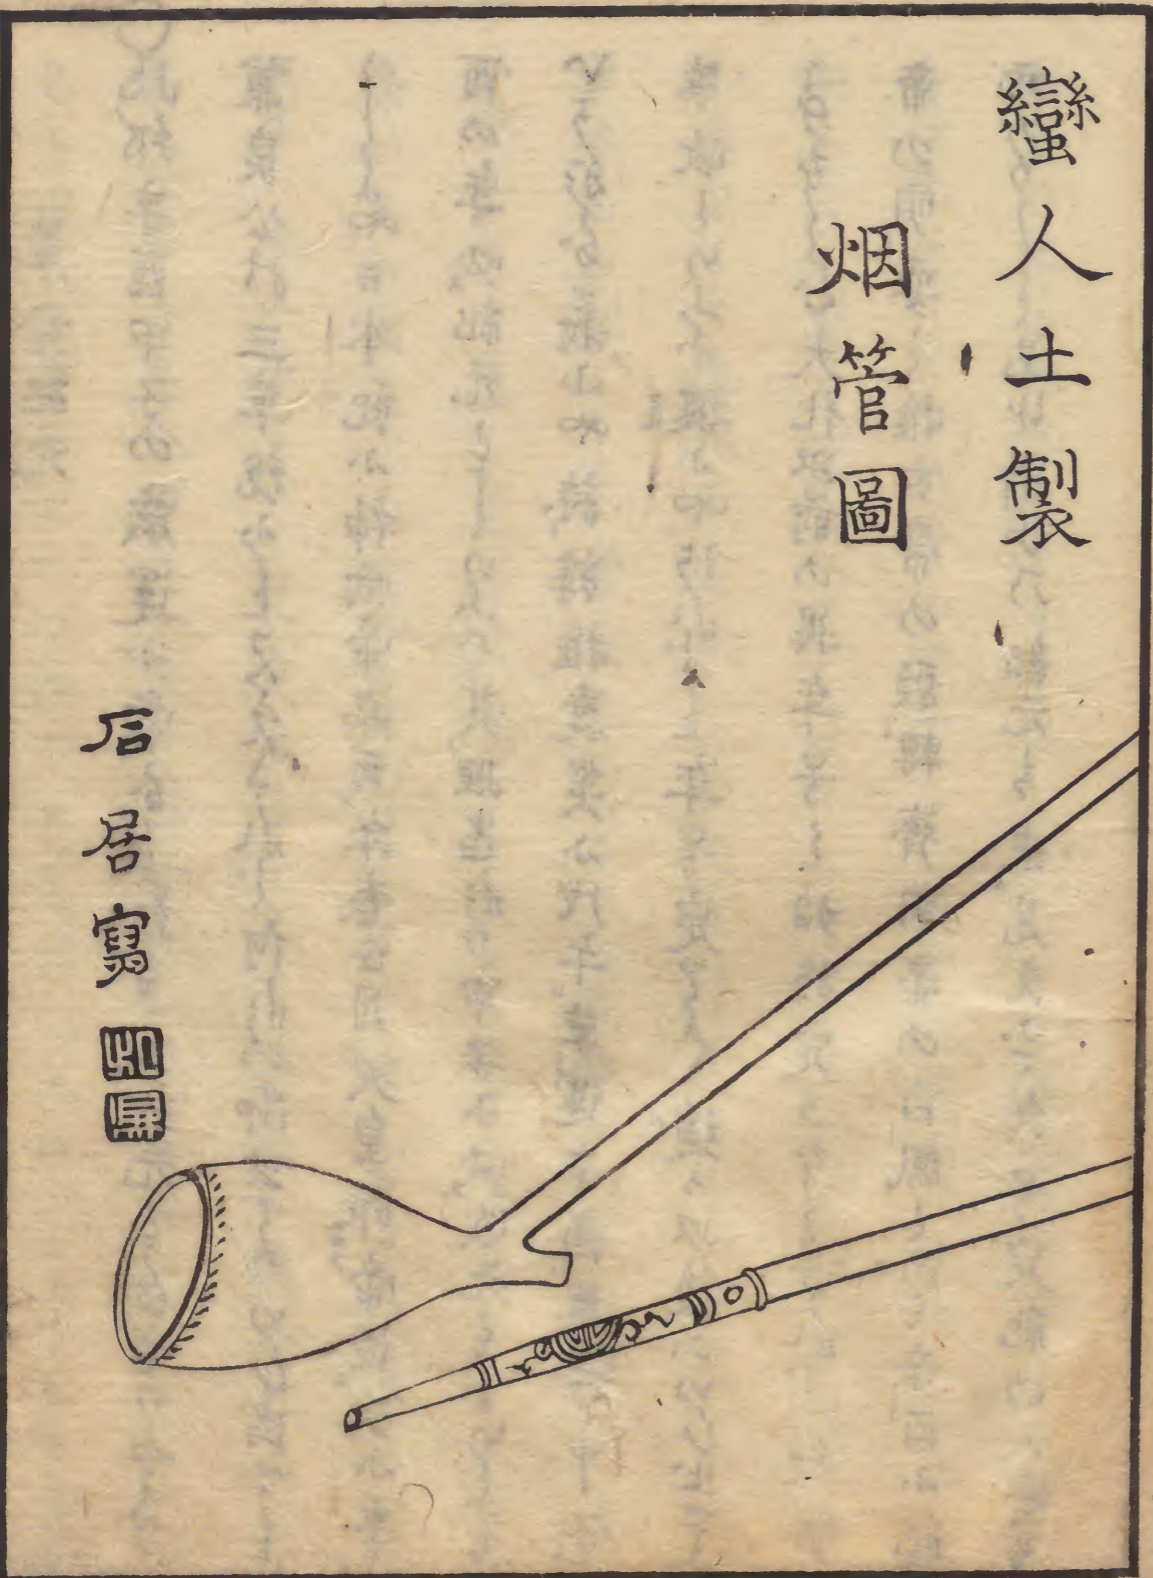 蠻人土製
烟管圖
石居寫